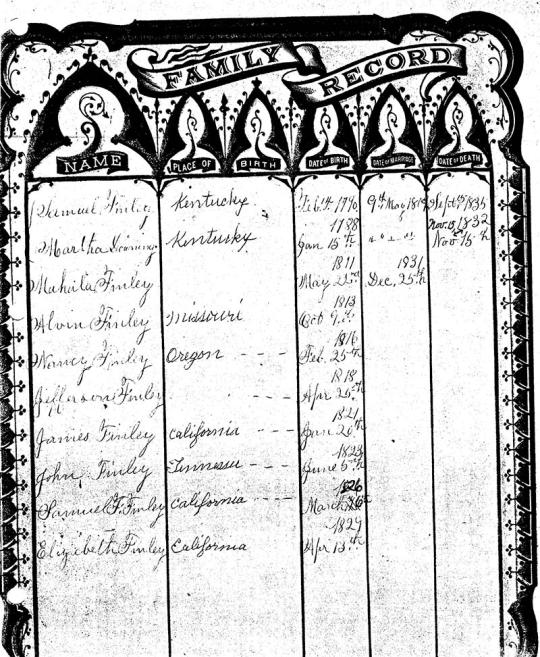 FAMILY RECORD
NAME PLACE OF BIRTH DATE OF BIRTH DATE OF MARRIAGE DATE OF DEATH
Samuel Finley Kentucky Feb 6th 1790 9th May 1809 Sept 1835
1788 Nov. 15 1832
Martha Kentusky Jan 15th Nov 15th
1811 1931
Mahala Finley May 22nd Dec, 25th
1813
Alvin Finley Missouri Oct 9th
1816
Nancy Finley Oregon - - - Feb. 25th
1818
Jefferson Finley - - - Apr 25th
1821
James Finley California - - - Jan 26th
1823
John, Finley Tennessee - - - June 5th
1826
Samuel F. Finley California - - - March
1829
Elizabeth Finley California Apr 13th